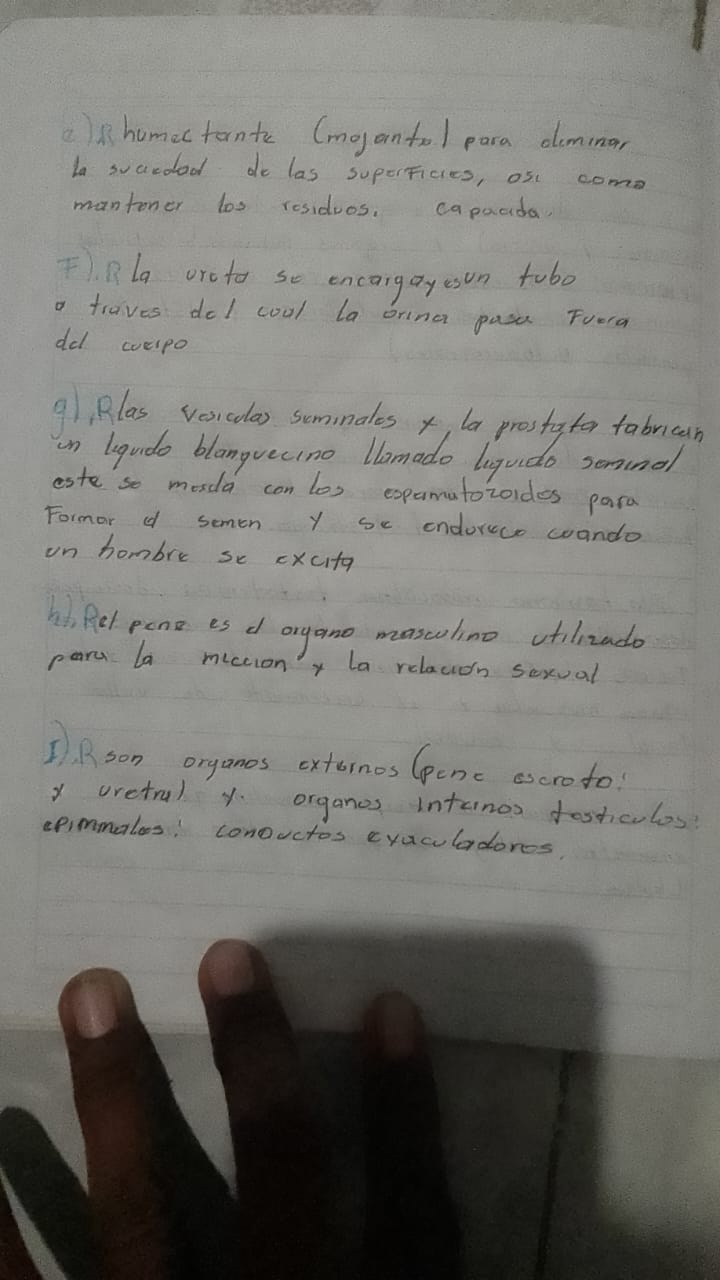 e) R humectante (mojante) para eliminar
la suciedad de las superficies, asi como
mantener los residuos. capacida.
F). R la ureta se encarga y es un tubo
a traves del cual la orina pasa Fuera
del cuerpo
g). R las vesiculas seminales y la prostata fabrican
un liquido blanquecino llamado liquido seminal
este se mescla con los espamatozoides para
Formar el semen y se endurece cuando
un hombre se excita
h). R el pene es el organo masculino utilizado
para la miccion y la relacion sexual
I). R son organos externos (pene escroto:
y uretra) y. organos internos testiculos:
conductos eyaculadores.